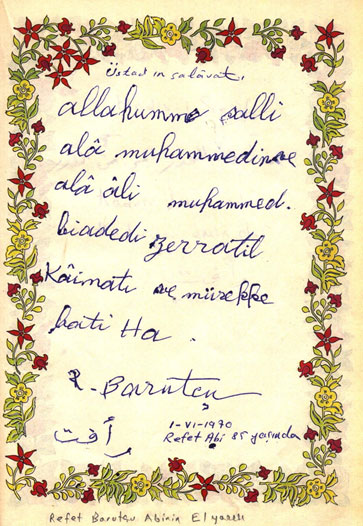 Üstad ın salâvatı
allahumme salli
alâ muhammedin ve
alâ âli muhammed.
biadedi zerratil
Kâinatı ve mürekke
bati Ha .
R. Barutçu
1-VI-1970
رأفت
Refet Abi 85 yaşında
Refet Barutçu Abinin El yazılı